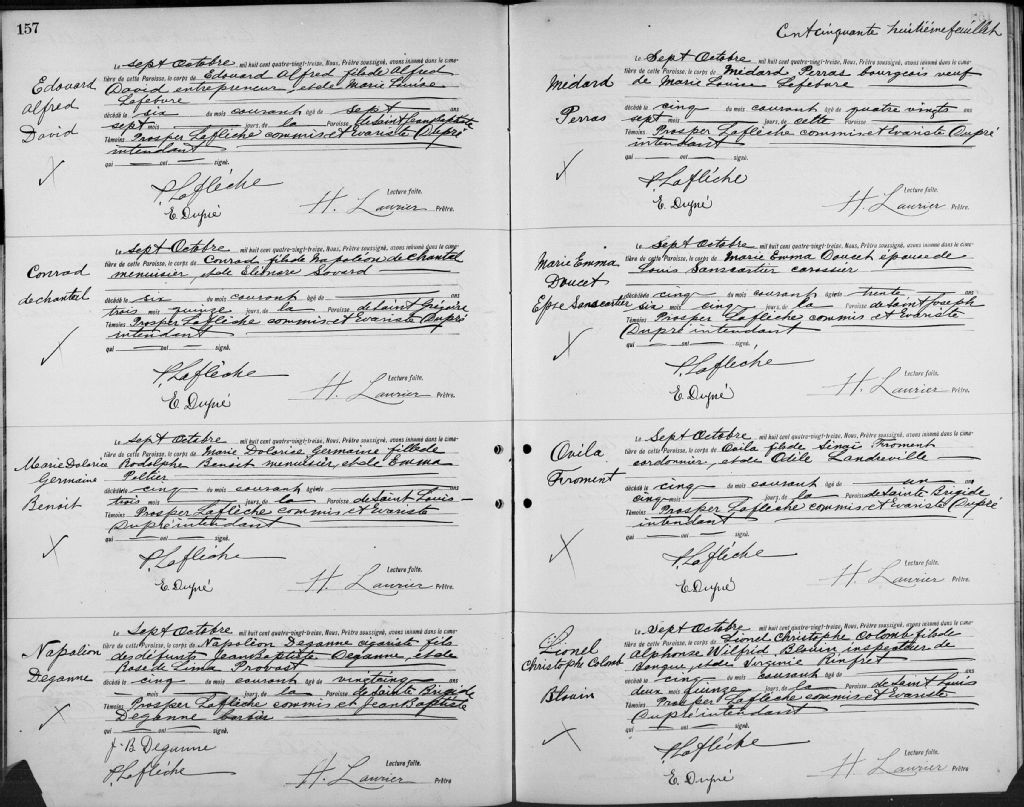 157
Edouard
Alfred
David
Le sept Octobre mil huit cent quatre-vingt-treize, Nous, Prêtre soussigné, avons inhumé dans le cime-
tière de cette Paroisse, le corps de Edouard Alfred fils de Alfred
David entrepreneur, et de Marie Louise
Lefebvre
décédé le six du mois courant âgé de sept ans
sept mois jours, de la Paroisse de Saint Jean Baptiste
Témoins Prosper Laflèche commis et Evariste Dupré
intendant
qui ont signé.
P. Laflèche
E. Dupré
Lecture faite.
H. Laurier Prêtre.
Conrad
de chantel
Le sept Octobre mil huit cent quatre-vingt-treize, Nous, Prêtre soussigné, avons inhumé dans le cime-
tière de cette Paroisse, le corps de Conrad fils de Napoléon de chantel
menuisier, et de Eléonore Sovard
décédé le six du mois courant âgé de ans
trois mois quinze jours, de la Paroisse de Saint Grégoire
Témoins Prosper Laflèche commis et Evariste Dupré
intendant
qui ont signé.
P. Laflèche
E. Dupré
Lecture faite.
H. Laurier Prêtre.
Marie Dolorice
Germaine
Benoit
Le sept Octobre mil huit cent quatre-vingt-treize, Nous, Prêtre soussigné, avons inhumé dans le cime-
tière de cette Paroisse, le corps de Marie Dolorise Germaine fille de
Rodolphe Benoit menuisier, et de Emma
Peltier
décédée le cinq du mois courant âgée de ans
trois mois jours, de la Paroisse de Saint Louis
Témoins Prosper Laflèche commis et Evariste
Dupré intendant
qui ont signé.
P. Laflèche
E. Dupré
Lecture faite.
H. Laurier Prêtre.
Napoléon
Deganne
Le Sept Octobre mil huit cent quatre-vingt-treize, Nous, Prêtre soussigné, avons inhumé dans le cime-
tière de cette Paroisse, le corps de Napoléon Deganne cigariste fils
de défunts Jean Baptiste Deganne, et de
Rose de Lima Provost
décédé le cinq du mois courant âgé de vingt cinq ans
mois jours, de la Paroisse de Sainte Brigide
Témoins Prosper Laflèche commis et Jean Baptiste
Deganne barbier
qui ont signé.
J. B. Deganne
P. Laflèche
Lecture faite.
H. Laurier Prêtre
Cent cinquante huitième feuillet
Médard
Perras
Le Sept Octobre mil huit cent quatre-vingt-treize, Nous, Prêtre soussigné, avons inhumé dans le cime-
tière de cette Paroisse, le corps de Médard Perras bourgeois veuf
de Marie Louise Lefebvre
décédé le cinq du mois courant âgé de quatre vingts ans
sept mois jours, de cette Paroisse
Témoins Prosper Laflèche commis et Evariste Dupré
intendant
qui ont signé.
P. Laflèche
E. Dupré
Lecture faite.
H. Laurier Prêtre.
Marie Emma
Doucet
Epse Sanscartier
Le Sept Octobre mil huit cent quatre-vingt-treize, Nous, Prêtre soussigné, avons inhumé dans le cime-
tière de cette Paroisse, le corps de Marie Emma Doucet épouse de
Louis Sanscartier carossier
décédée le cinq du mois courant âgée de trente ans
six mois cinq jours, de la Paroisse de Saint Joseph
Témoins Prosper Laflèche commis et Evariste
Dupré intendant
qui ont signé.
P. Laflèche
E. Dupré
Lecture faite.
H. Laurier Prêtre.
Ovila
Froment
Le Sept Octobre mil huit cent quatre-vingt-treize, Nous, Prêtre soussigné, avons inhumé dans le cime-
tière de cette Paroisse, le corps de Ovila fils de Sinaï Froment
cordonnier, et de Otile Landreville
décédé le cinq du mois courant âgé de un ans
cinq mois jours, de la Paroisse de Sainte Brigide
Témoins Prosper Laflèche commis et Evariste Dupré
intendant
qui ont signé.
P. Laflèche
E. Dupré
Lecture faite.
H. Laurier Prêtre.
Lionel
Christophe Colomb
Blouin
Le Sept Octobre mil huit cent quatre-vingt-treize, Nous, Prêtre soussigné, avons inhumé dans le cime-
tière de cette Paroisse, le corps de Lionel Christophe Colomb fils de
Alphonse Wilfrid Blouin inspecteur de
banque, et de Virginie Rinfret
décédé le cinq du mois courant âgé de ans
deux mois quinze jours, de la Paroisse de Saint Louis
Témoins Prosper Laflèche commis et Evariste
Dupré intendant
qui ont signé.
P. Laflèche
E. Dupré
Lecture faite.
H. Laurier Prêtre.